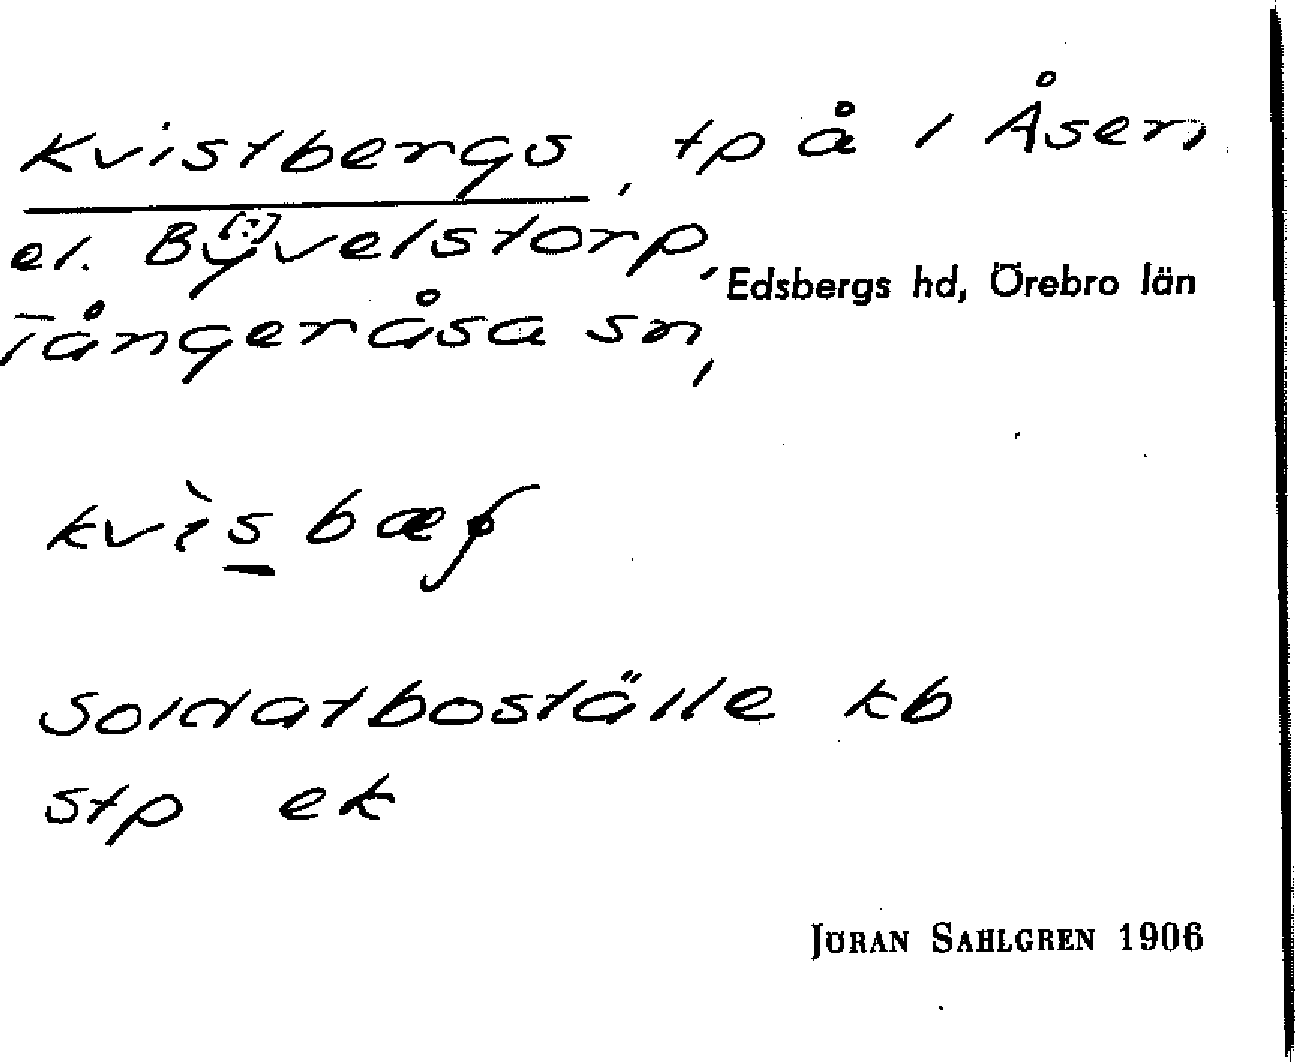 Kvistbergs, tp å 1 Åsen
el. By[?]velstorp,
Edsbergs hd, Örebro län
Tångeråsa sn,
kvìs bæ
Soldatboställe kb
stp ek
JÖRAN SAHLGREN 1906